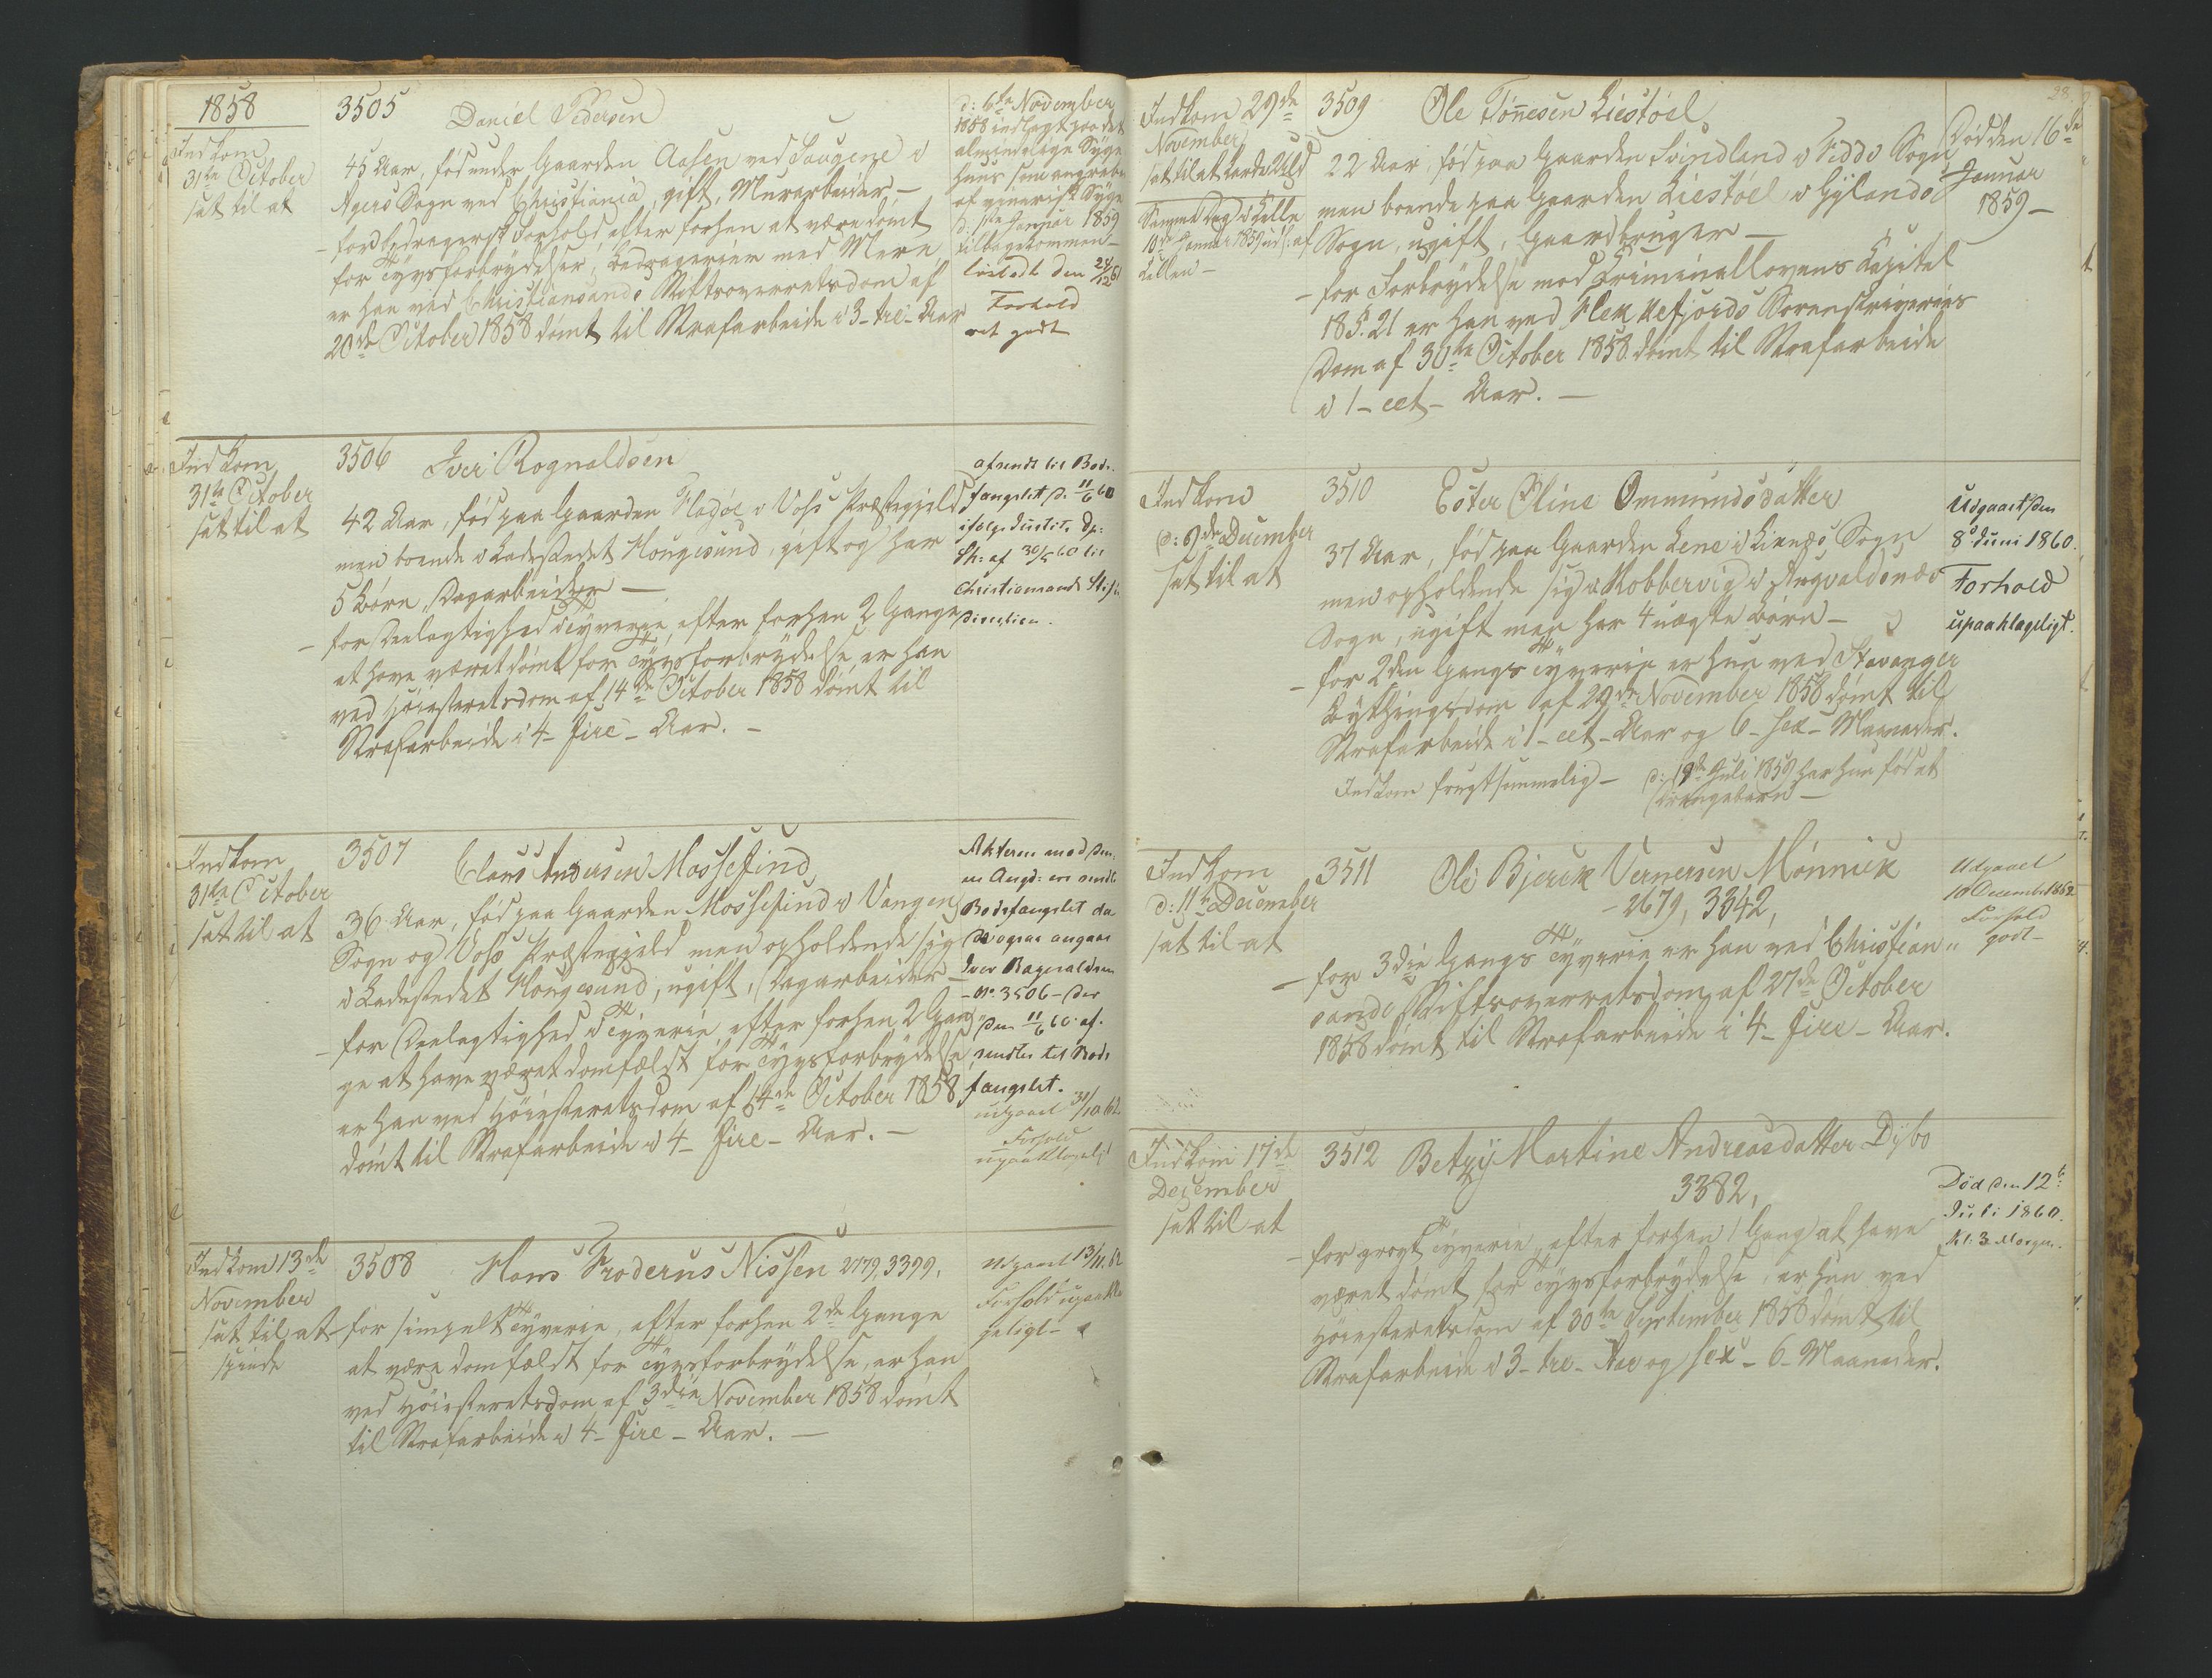 1858
Indkom
31te October
sat til at
3505 Daniel Pedersen
45 Aar, fød under Gaarden Aasen ved Saugene i
Agers Sogn ved Christiania, gift, Murarbeider –
– for bedragersk Forhold, efter forhen at være dømt
for Tyvsforbrydelser, Bedragerier med Mere
er han ved Christiansands Stiftsoverretsdom af
20de October 1858 dømt til Strafarbeide i 3 – tre – Aar
d: 6te November
1858 indlagt paa det
almindelige Syge
huus som angreben
af venerisk Syge
d: 1ste Januar 1859
tilbagekommen –
løsladt den 24/12 61
Forhold
ret godt
Indkom
31te October
sat til at
3506 Iver Rognaldsen
42 Aar, fød paa Gaarden i Voss Præstegjeld
men boende i Ladestedet Hougesund, gift og har
5 Børn, Dagarbeider –
– for Deelagtighed i Tyverie, efter forhen 2 Gange
at have været dømt for Tyvsforbrydelse, er han
ved Høiesteretsdom af 14de October 1858 dømt til
Strafarbeide i 4 – fire – Aar. –
afsendt til Bods-
fængslet d. 11/6 60
ifølge Justits Dp:
Sk: af 30/5 60 til
Christiansands Stifts
Direction.
Indkom
31te October
sat til at
3507 Claus Andersen Mossefind
36 Aar, fød paa Gaarden Mossefind i Vangens
Sogn og Voss Præstegjeld men opholdende sig
i Ladestedet Hougesund, ugift, Dagarbeider –
– for Deelagtighed i Tyverie, efter forhen 2 Gan„
ge at have været domfældt for Tyvsforbrydelse,
er han ved Høiesteretsdom af 14de October 1858
dømt til Strafarbeide i 4 – fire – Aar. –
Akterne mod den-
ne Angd: ere sendt
Bodsfængslet da
de ogsaa angaae
Iver Ragnaldsen
– No 3506 – der
den 11/6 60 af-
sendtes til Bods
fængslet.
udgaaet 31/10 62
Forhold
upaaklageligt
Indkom 13de
November
sat til at
spinde
3508 Hans Proderus Nissen 2179, 3399,
– for simpelt Tyverie, efter forhen 2de Gange
at være domfældt for Tyvsforbrydelse, er han
ved Høiesteretsdom af 3die November 1858 dømt
til Strafarbeide i 4 – fire – Aar. –
Udgaaet 13/11.62
Forhold upaakla
geligt –
28.
Indkom 29de
November
sat til at karde Uld
Samme Dag i Celle
10de Januar 1859 uds: af
Cellen –
3509 Ole Tönnesen Liestöel
22 Aar, fød paa Gaarden Svindland i Sogn
men boende paa Gaarden Liestöel i Gylands
Sogn, ugift, Gaardbruger –
– for Forbrydelse mod Criminallovens Capitel
18 §. 21 er han ved Flekkefjords Sorenskriveries
Dom af 30te October 1858 dømt til Strafarbeide
i 1 – eet – Aar. –
Død den 16de
Januar
1859 –
Indkom
d: 9de December
sat til at
3510 Ester Oline Ommundsdatter
37 Aar, fød paa Gaarden Lene i Sogn
men opholdende sig i Kobbervig i Augvaldsnæs
Sogn, ugift men har 4 uægte Børn –
– for 2den Gangs Tyverie er hun ved Stavanger
Bythingsdom af 29de November 1858 dømt til
Strafarbeide i 1 – eet – Aar og 6 – sex – Maaneder.
Indkom frugtsommelig – d: 19de Juli 1859 har hun født et
Drengebarn –
Udgaaet den
8d Juni 1860.
Forhold
upaaklageligt.
Indkom
d: 11te December
sat til at
3511 Ole Bjerck Vernersen Mönnick
– 2679, 3342,
– for 3die Gangs Tyverie er han ved Christian„
sands Stiftsoverretsdom af 27de October
1858 dømt til Strafarbeide i 4 – fire – Aar.
Udgaaet
10 Decembr 1862
Forhold
godt –
Indkom 17de
December
sat til at
3512 Betzy Martine Andreasdatter Dybo
3382,
– for groft Tyverie, efter forhen 1 Gang at have
været dømt for Tyvsforbrydelse, er hun ved
Høiesteretsdom af 30te September 1858 dømt til
Strafarbeide i 3 – tre – Aar og sex – 6 – Maaneder.
Død den 12te
Juli 1860.
Kl: 3 Morgen.